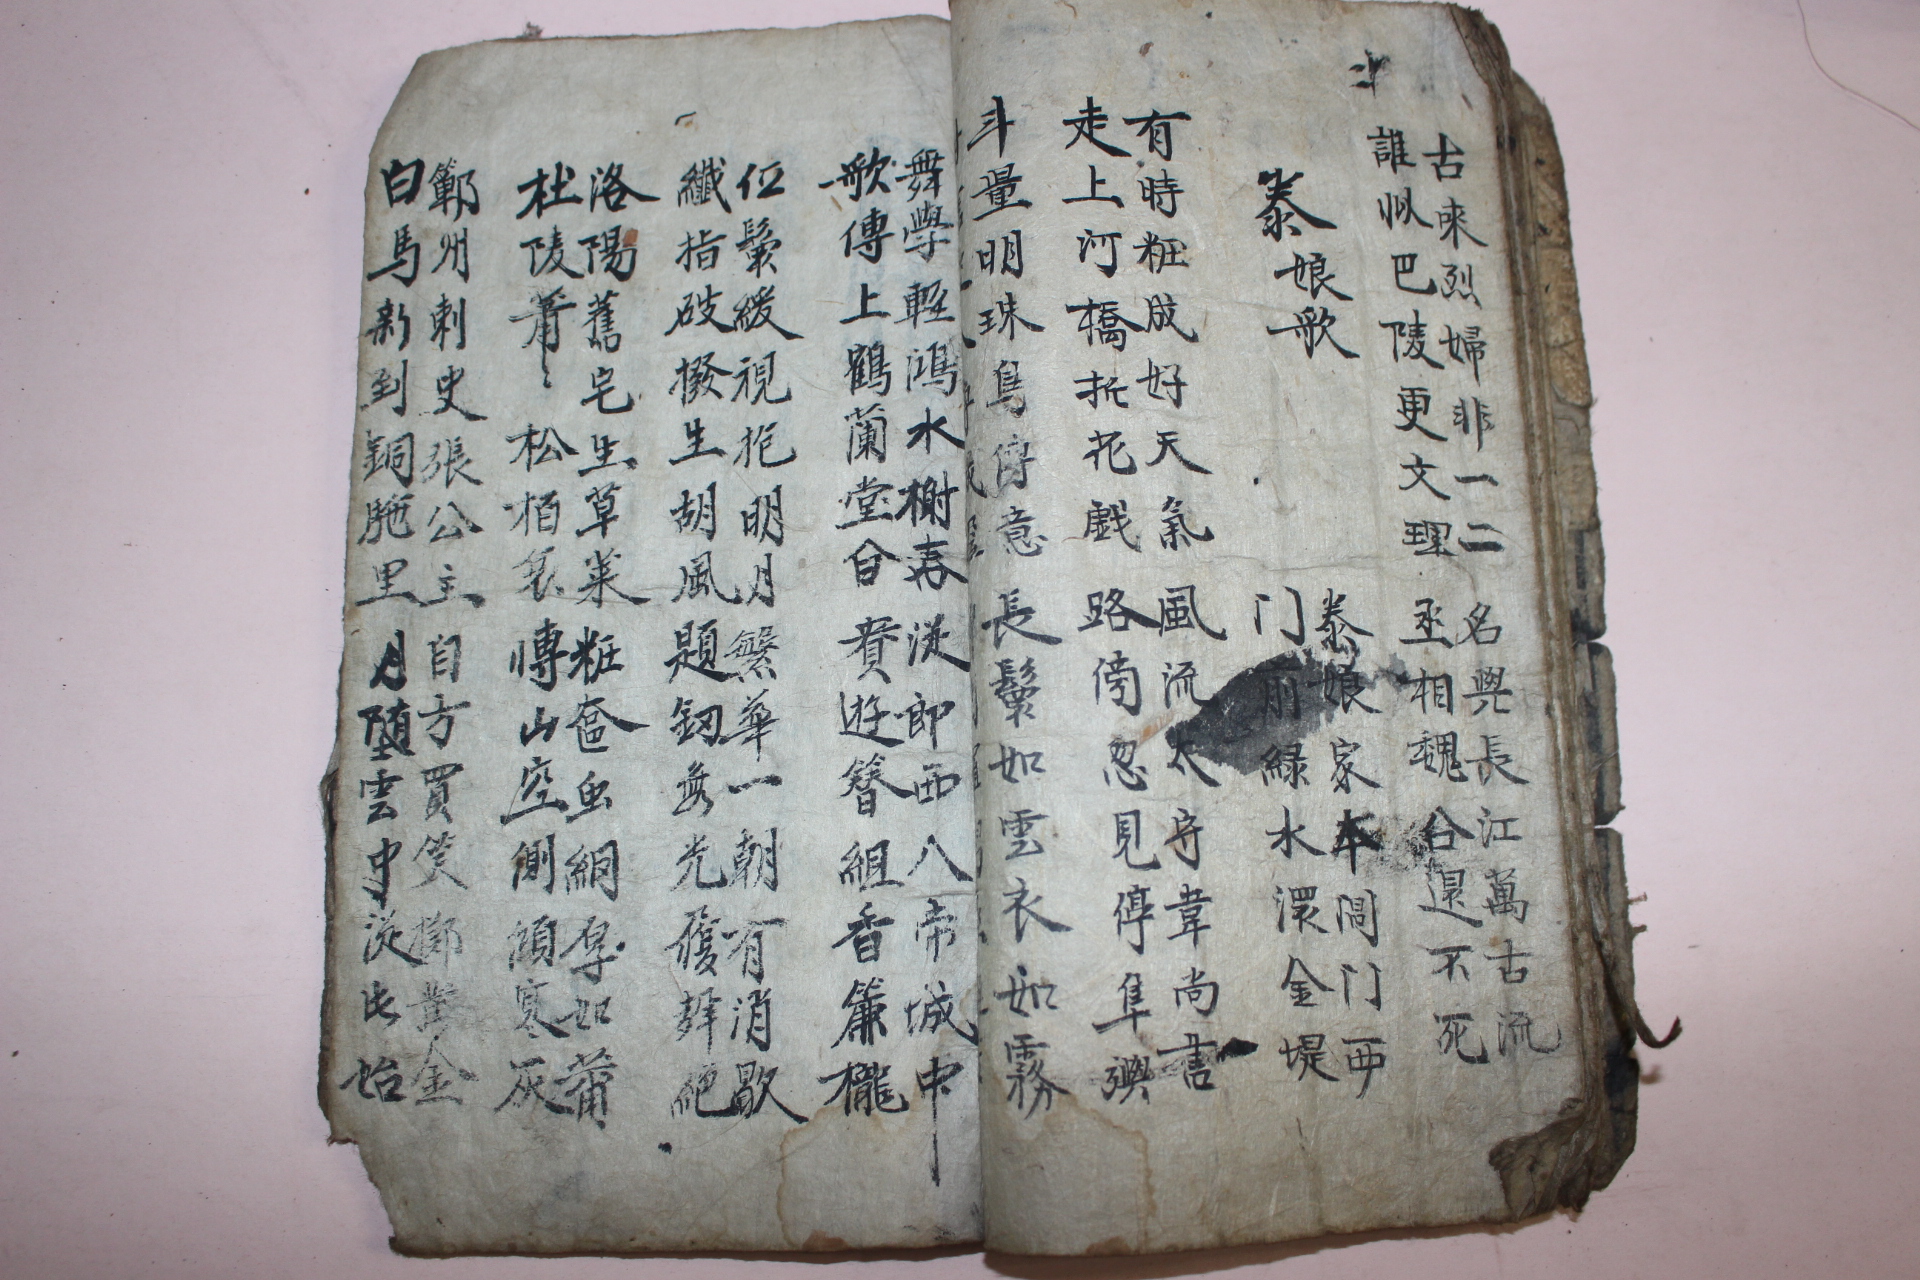 古來烈婦非一二 名與長江萬古流
誰似巴陵更文理 丞相魏公還不死
泰娘歌
泰娘家本閶门西
门前綠水濵金堤
有時粧成好天氣 風流太守韋尚書
走上河橋折花戱 路傍忽見停隼旟
斗量明珠鳥傳意 長鬟如雲衣如霧
舞學輕鴻水榭春 從郎西八帝城中
歌傳上鶴蘭堂 貴遊簪組香簾櫳
低鬟緩視抱明月 繁華一朝有消歇
纖指破撥生胡風 題劒無光履聲絶
洛陽舊宅生草菜 粧奩虫網厚如
杜陵蕭〻松栢哀 博山空側傾寒灰
蘄州刺史張公主 自方買笑擲黃金
白馬新到銅駞里 月墮雲中從此始